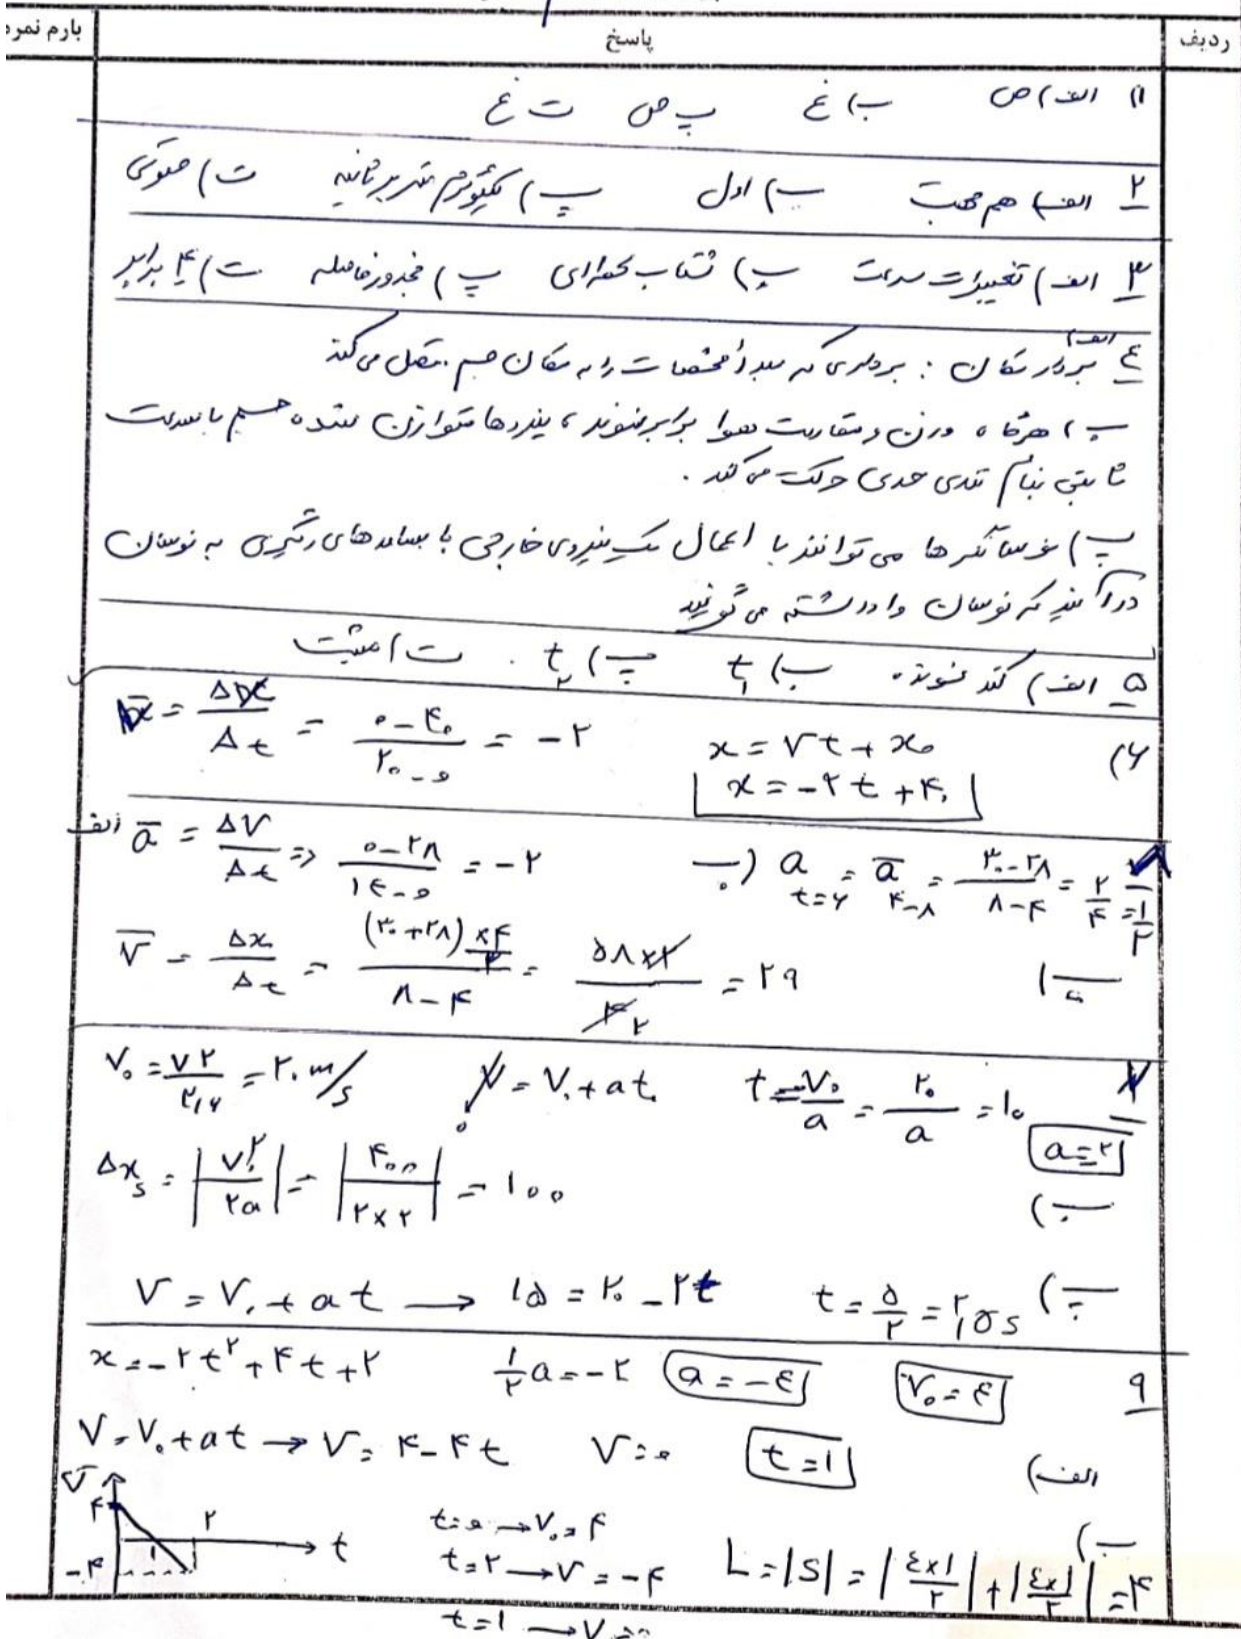 ردیف پاسخ بارم نمره
۱) الف) ص ب) غ پ ص ت غ
۲ الف) هم جهت ب) اول پ) کیلوگرم متر بر ثانیه ت) صوتی
۳ الف) تغییرات سرعت ب) شتاب لحظه‌ای پ) مجذور فاصله ت) ۴ برابر
۴ الف) بردار مکان : برداری که مبدأ مختصات را به مکان جسم متصل می‌کند
ب) هرگاه وزن و مقاومت هوا برابر شوند ، نیروها متوازن شده جسم با سرعت
ثابتی بنام تندی حدی حرکت می‌کند .
پ) نوسانگرها می‌توانند با اعمال یک نیروی خارجی با بسامدهای دیگری به نوسان
درآیند که نوسان واداشته می‌گویند
۵ الف) کند شونده ب) t₁ پ) t₂ . ت) مثبت
۶) x = vt + x₀ = Δx/Δt = (۰-۴۰)/(۲۰-۰) = -۲
x = -۲t + ۴۰
الف ā = Δv/Δt => (۰-۲۸)/(۱۴-۰) = -۲ ب) a t=۶ = ā ۴-۸ = (۳۰-۲۸)/(۸-۴) = ۲/۴ = ۱/۲
پ) v̄ = Δx/Δt = (۳۰+۲۸)×۴/۲ / (۸-۴) = ۵۸×۲/۴ = ۲۹
v₀ = ۷۲/۳,۶ = ۲۰ m/s v = v₀ + at t = v₀/a = ۲۰/a = ۱۰
a = ۲
ب) Δxs = |v₀²/۲a| = |۴۰۰/۲×۲| = ۱۰۰
پ) v = v₀ + at → ۱۵ = ۲۰ - ۲t t = ۵/۲ = ۲,۵s
۹ x = -۲t² + ۴t + ۲ ۱/۲a = -۲ a = -۴ v₀ = ۴
الف) v = v₀ + at → v = ۴ - ۴t v = ۰ t = ۱
v ۴ ۲ ۱ -۴ t
t = ۰ → v₀ = ۴
t = ۲ → v = -۴
ب) L = |S| = |۴×۱/۲| + |۴×۱/۲| = ۴
t = ۱ → v = ۰